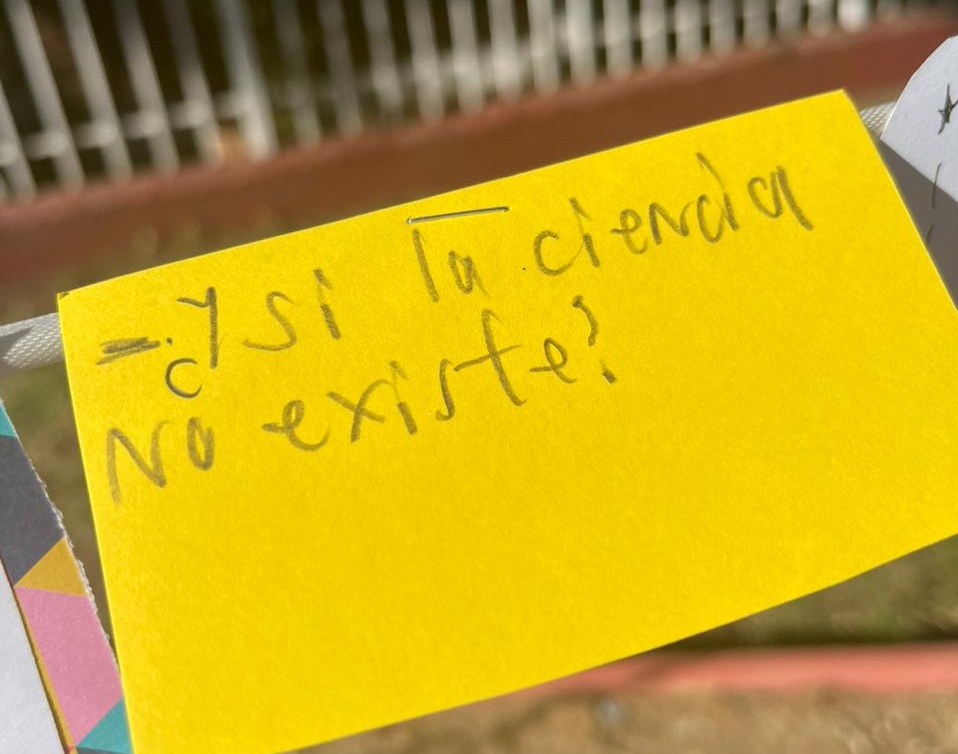 -¿y si la ciencia
No existe?